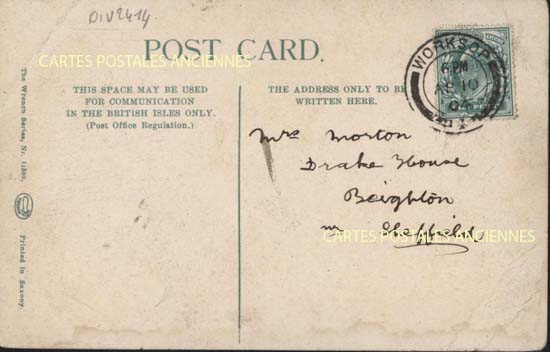 DIV2414
CARTES POSTALES ANCIENNES
POST CARD.
WORKSOP
10
04
THIS SPACE MAY BE USED
FOR COMMUNICATION
IN THE BRITISH ISLES ONLY.
(Post Office Regulation.)
THE ADDRESS ONLY TO BE
WRITTEN HERE.
Mrs Morton
Drake House
Beighton
nr Sheffield
CARTES POSTALES ANCIENNES
The Wrench Series, Nr.
Printed in Saxony